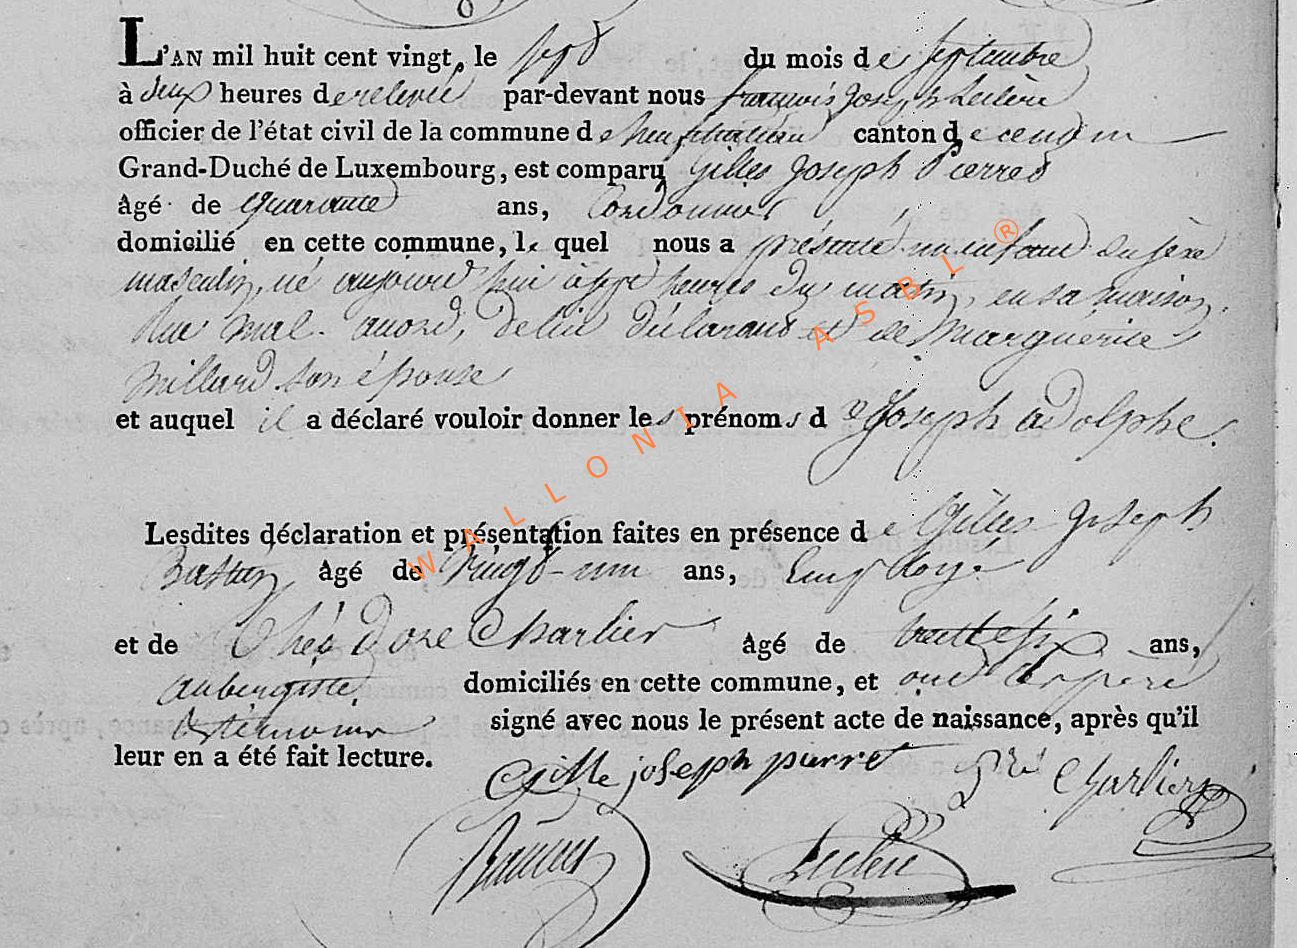 L'AN mil huit cent vingt, le sept du mois de septembre
à deux heures de relevée par-devant nous françois joseph Leclere
officier de l'état civil de la commune de neufchateau canton de ce nom
Grand-Duché de Luxembourg, est comparu Gilles Joseph Pierred
âgé de quarante ans, Cordonnier
domicilié en cette commune, le quel nous a présenté un enfant du sèxe
masculin, né aujourd'hui à sept heures du matin, en sa maison,
Rue de lui déclarant et de Marguerite
Millard son épouse
et auquel il a déclaré vouloir donner les prénoms de Joseph adolphe.
Lesdites déclaration et présentation faites en présence de Gilles Joseph
âgé de Vingt-un ans, Employé
et de Théodore Charlier âgé de ans,
aubergiste domiciliés en cette commune, et ont le père
et témoins signé avec nous le présent acte de naissance, après qu'il
leur en a été fait lecture.
Gille joseph pierret Charlier
Leclere
WALLONIA ASBL ®